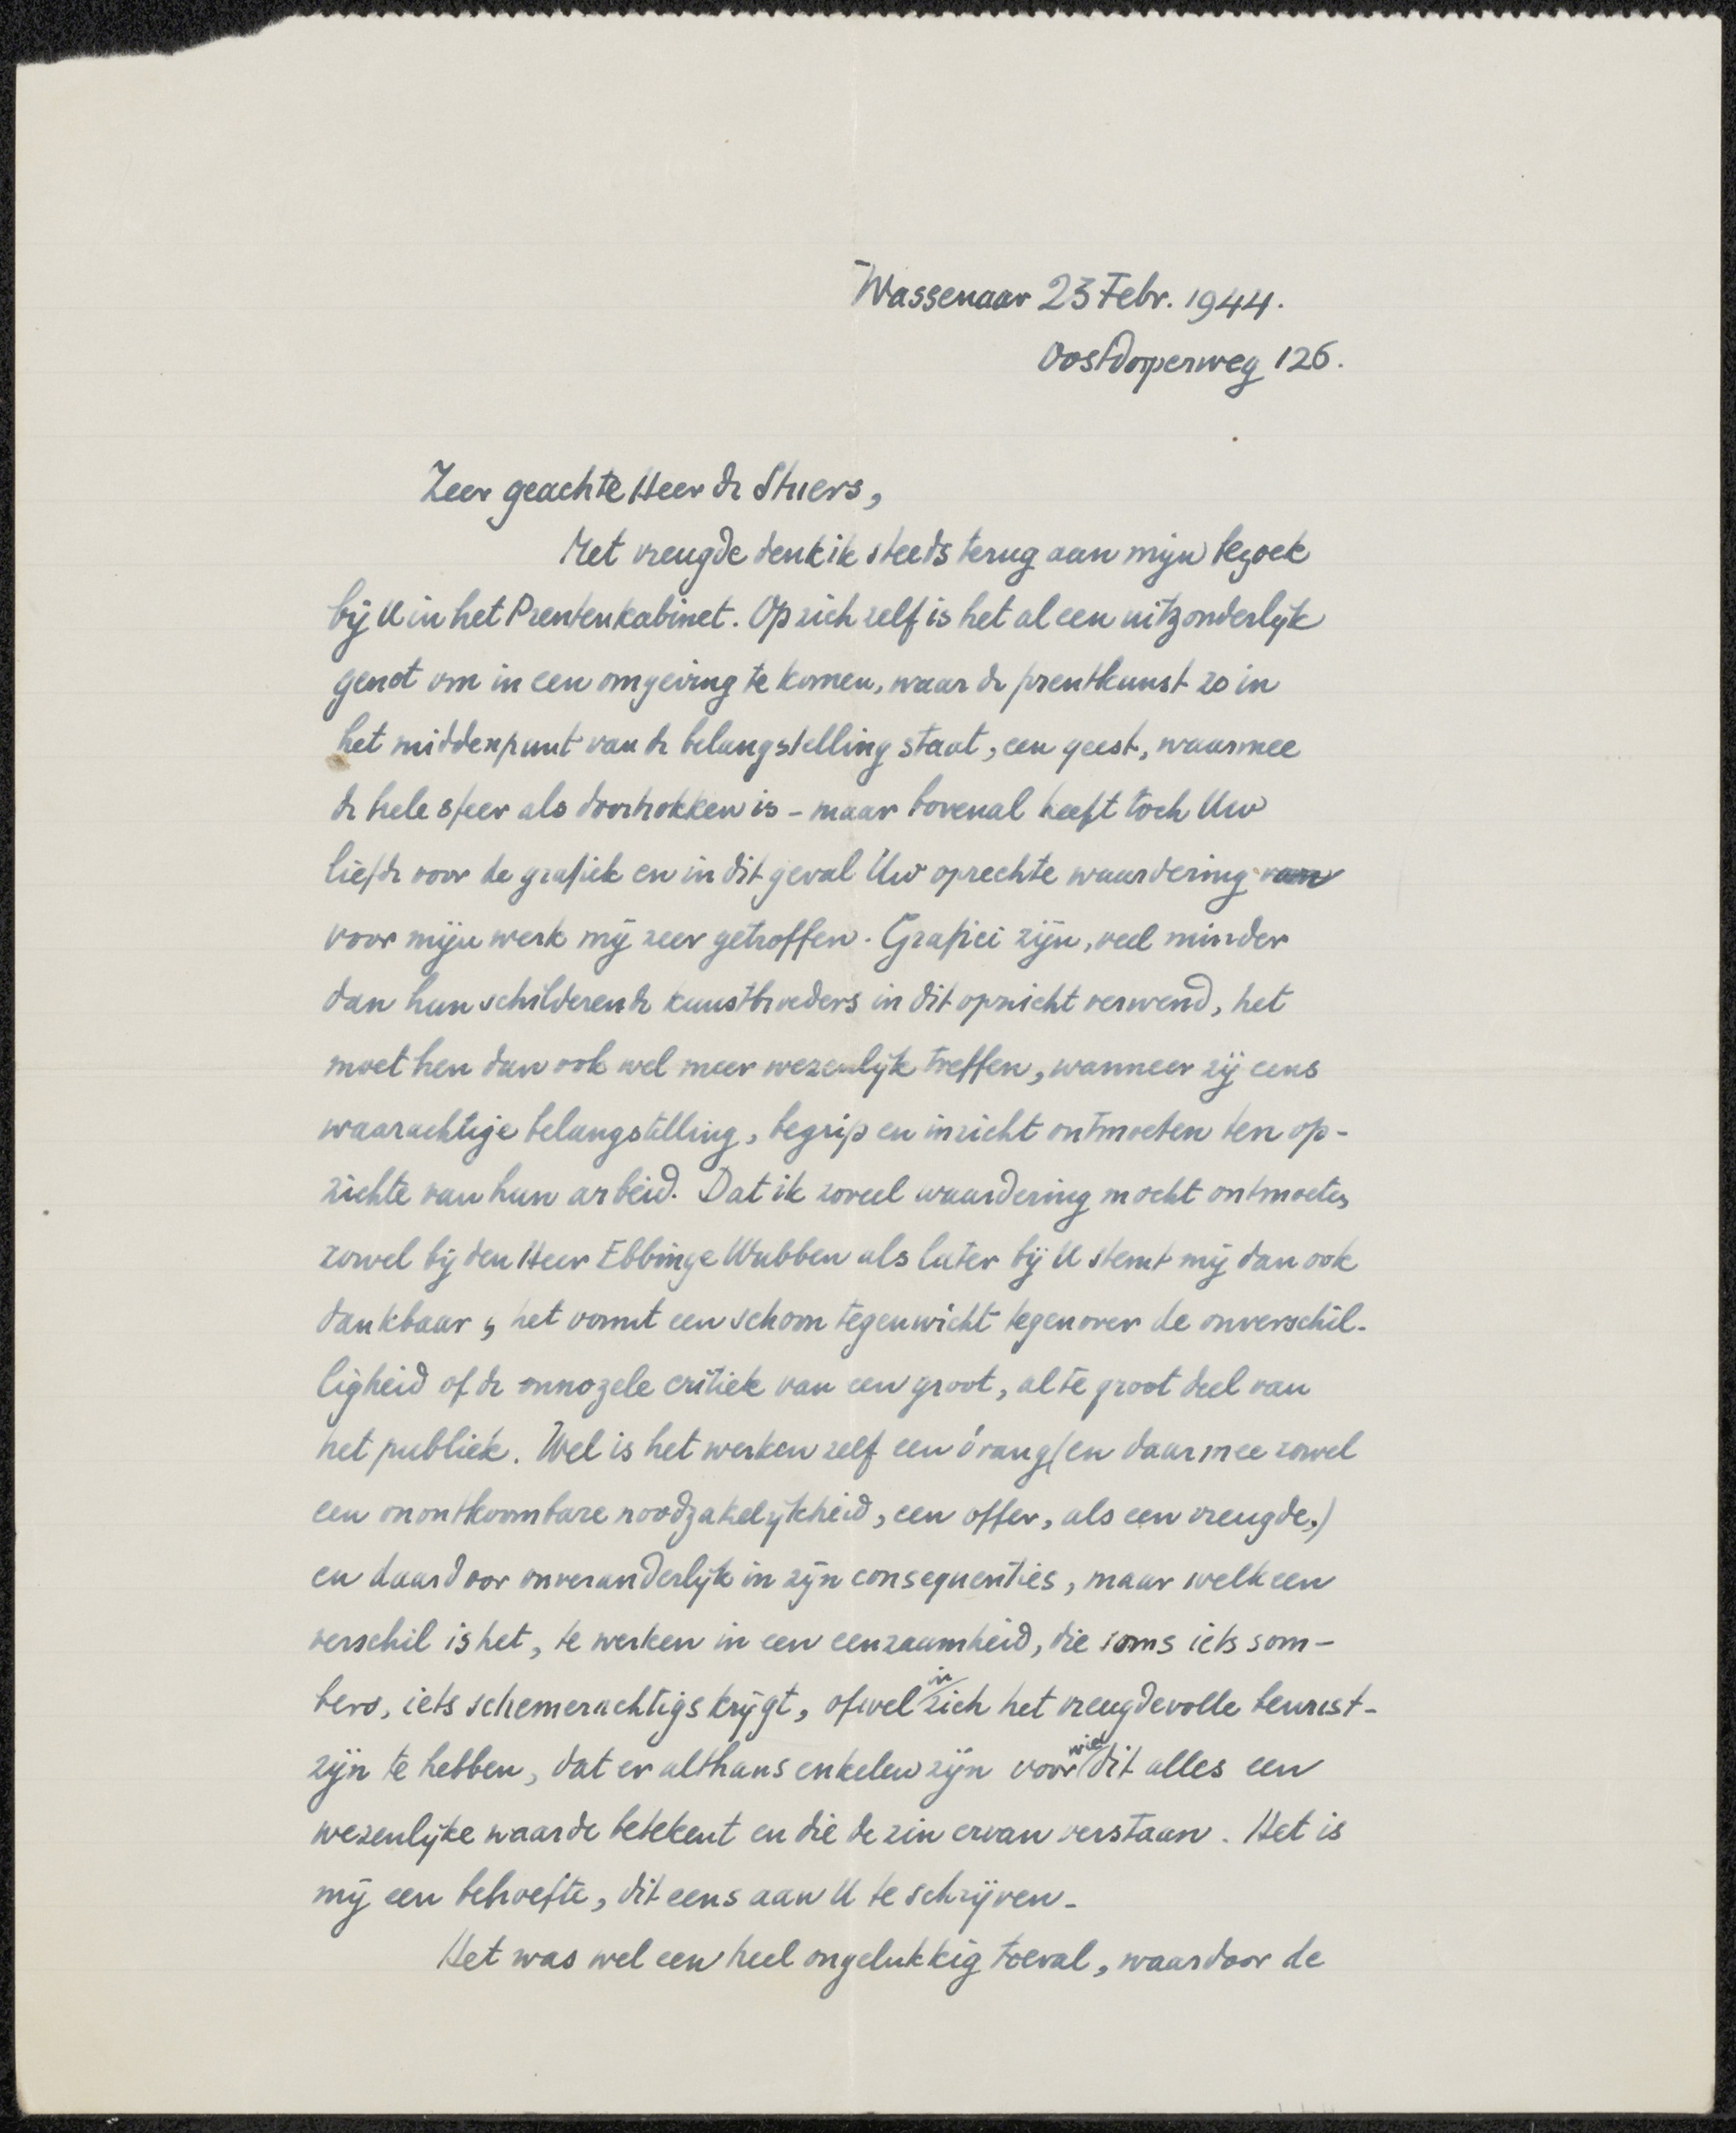 Wassenaar 23 Febr. 1944.
Oostdorperweg 126.
Zeer geachte Heer de Stuers,
Met vreugde denk ik steeds terug aan mijn bezoek
bij U in het Prentenkabinet. Op zich zelf is het al een uitzonderlijk
genot om in een omgeving te komen, waar de prentkunst zo in
het middenpunt van de belangstelling staat, een geest, waarmee
de hele sfeer als doortrokken is - maar bovenal heeft toch Uw
liefde voor de grafiek en in dit geval Uw oprechte waardering van
voor mijn werk mij zeer getroffen. Grafici zijn, veel minder
dan hun schilderende kunstbroeders in dit opzicht verwend, het
moet hen dan ook wel meer wezenlijk treffen, wanneer zij eens
waarachtige belangstelling, begrip en inzicht ontmoeten ten op-
zichte van hun arbeid. Dat ik zoveel waardering mocht ontmoeten,
zowel bij den Heer Ebbinge Wubben als later bij U stemt mij dan ook
dankbaar, het vormt een schoon tegenwicht tegenover de onverschil-
ligheid of de onnozele critiek van een groot, al te groot deel van
het publiek. Wel is het werken zelf een drang (en daarmee zowel
een onontkoombare noodzakelijkheid, een offer, als een vreugde,)
en daardoor onveranderlijk in zijn consequenties, maar welk een
verschil is het, te werken in een eenzaamheid, die soms iets som-
bers, iets schemerachtigs krijgt, ofwel in zich het vreugdevolle bewust-
zijn te hebben, dat er althans enkelen zijn voor wie dit alles een
wezenlijke waarde betekent en die de zin ervan verstaan. Het is
mij een behoefte, dit eens aan U te schrijven.
Het was wel een heel ongelukkig toeval, waardoor de